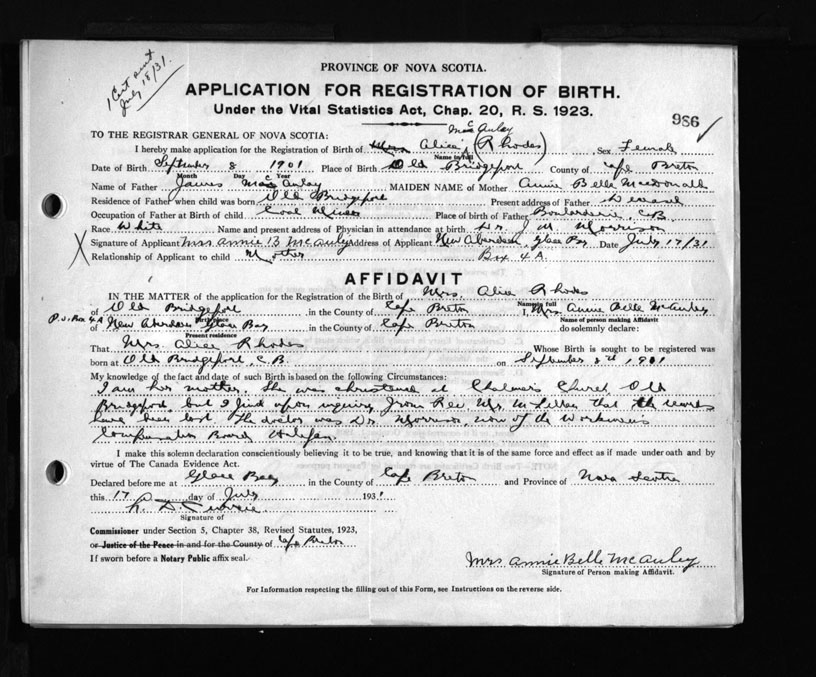 1 Cert sent
July 18/31.
PROVINCE OF NOVA SCOTIA.
APPLICATION FOR REGISTRATION OF BIRTH.
Under the Vital Statistics Act, Chap. 20, R. S. 1923.
986
TO THE REGISTRAR GENERAL OF NOVA SCOTIA:
MacAulay
I hereby make application for the Registration of Birth of Alice (Rhodes) Sex Female
Name in full
Date of Birth September 8 1901 Place of Birth Old Bridgeport County of Cape Breton
Month Day Year
Name of Father James MacAulay MAIDEN NAME of Mother Annie Belle Macdonald
Residence of Father when child was born Old Bridgeport Present address of Father Deceased
Occupation of Father at Birth of child Coal Miner Place of birth of Father Boularderie, C.B.
Race White Name and present address of Physician in attendance at birth Dr. J M Morrison
Signature of Applicant Mrs Annie B McAuley Address of Applicant New Aberdeen, Glace Bay Date July 17/31
Relationship of Applicant to child Mother Box 4 A.
AFFIDAVIT
IN THE MATTER of the application for the Registration of the Birth of Mrs. Alice Rhodes
Name in full
of Old Bridgeport in the County of Cape Breton I, Mrs. Annie Belle McAuley
Birthplace
Name of person making Affidavit
P.O. Box 4A of New Aberdeen Glace Bay in the County of Cape Breton do solemnly declare:
Present residence
That Mrs. Alice Rhodes Whose Birth is sought to be registered was
born at Old Bridgeport, C.B. on September 8th 1901
My knowledge of the fact and date of such Birth is based on the following Circumstances:
I am her mother. She was christened at Chalmers Church Old
Bridgeport but I find upon inquiry from Rev Mr. that the records
have been lost. The doctor was Dr. Morrison, now of the Workmen's
Compensation Board Halifax.
I make this solemn declaration conscientiously believing it to be true, and knowing that it is of the same force and effect as if made under oath and by
virtue of The Canada Evidence Act.
Declared before me at Glace Bay in the County of Cape Breton and Province of Nova Scotia
this 17 day of July 1931
Signature of
Commissioner under Section 5, Chapter 38, Revised Statutes, 1923,
or Justice of the Peace in and for the County of Cape Breton
If sworn before a Notary Public affix seal.
Mrs Annie Belle McAuley
Signature of Person making Affidavit.
For Information respecting the filling out of this Form, see Instructions on the reverse side.